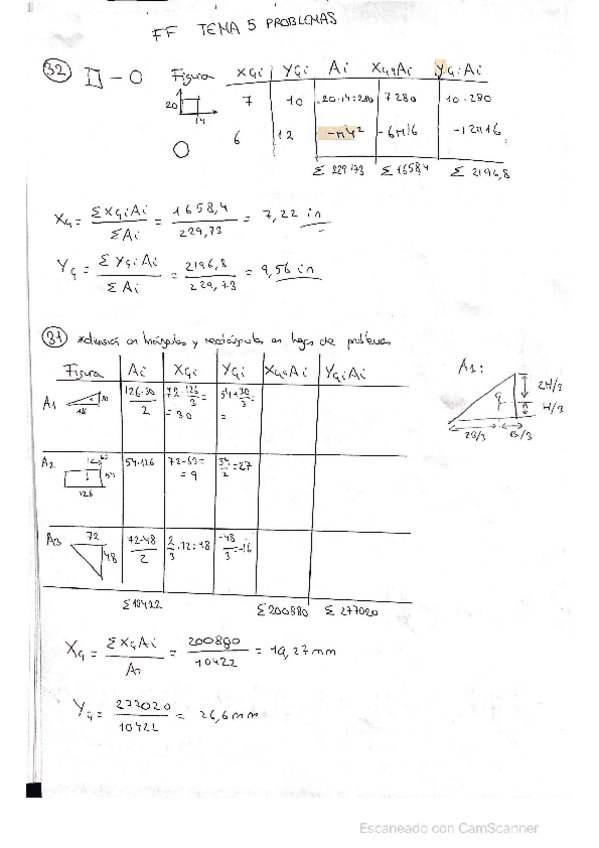 FF TEMA 5 PROBLEMAS
32 □ - O Figura XGi YGi Ai XGiAi YGiAi
20 14 7 10 20·14=280 7·280 10·280
O 6 12 -π4² -6π16 -12π16
Σ 229,73 Σ 1658,4 Σ 2196,8
XG = ΣXGiAi / ΣAi = 1658,4 / 229,73 = 7,22 in
YG = ΣYGiAi / ΣAi = 2196,8 / 229,73 = 9,56 in
31 *división en triángulos y rectángulos en hojas de problemas
Figura Ai XGi YGi XGiAi YGiAi
A1 126·30/2 72-126/3= =30 54+30/3= =
A1: 2H/3 H/3 2B/3 B/3 G
A2 63 54 126 54·126 72-63= =9 54/2=27
A3 72 48 72·48/2 2/3·72=48 -48/3=-16
Σ10422 Σ200880 Σ 277020
XG = ΣXGAi / AT = 200880 / 10422 = 19,27 mm
YG = 277020 / 10422 = 26,6 mm
Escaneado con CamScanner